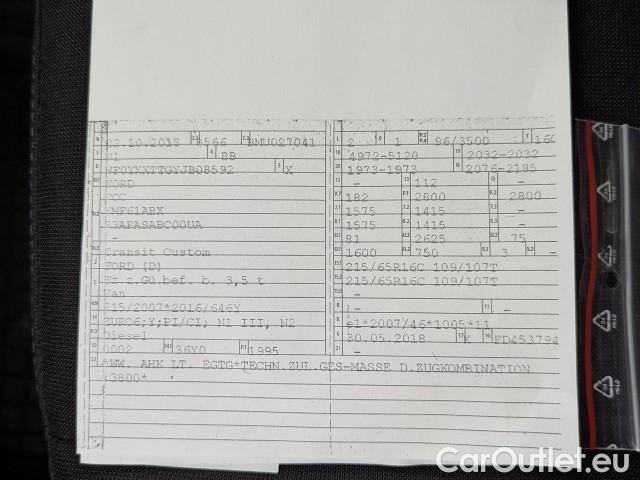 23.10.2018 8566 BMU027041
01 BB
WF0YXXTTGYJB08592 X
FORD
FCC
Transit Custom
FORD (D)
FZ.z.Gü.bef. b. 3,5 t
Van
715/2007*2016/646Y
EURO6;Y;PI/CI; N1 III, N2
Diesel
0002 36Y0 1995
*WW. AHK LT. EGTG*TECHN.ZUL.GES-MASSE D.ZUGKOMBINATION
:3800*
2 1 96/3500 160
4972-5120 2032-2032
1973-1973 2076-2185
- 112 -
182 2800 2800
1575 1415 -
1575 1415 -
81 2625 75
1600 750 3 -
215/65R16C 109/107T
215/65R16C 109/107T
-
- -
e1*2007/46*1005*11
30.05.2018 K ED453794
CarOutlet.eu